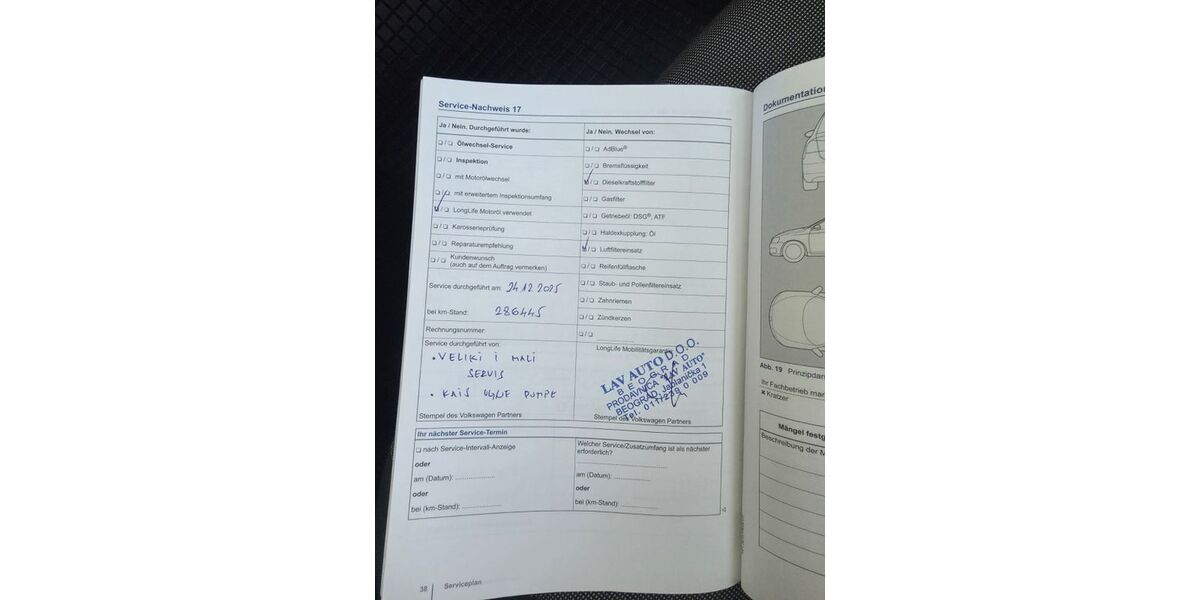 Service-Nachweis 17
Ja / Nein. Durchgeführt wurde:
❑ / ❑ Ölwechsel-Service
❑ / ❑ Inspektion
❑ / ❑ mit Motorölwechsel
❑ / ❑ mit erweitertem Inspektionsumfang
❑ / ❑ LongLife Motoröl verwendet
❑ / ❑ Karosserieprüfung
❑ / ❑ Reparaturempfehlung
❑ / ❑ Kundenwunsch
(auch auf dem Auftrag vermerken)
Service durchgeführt am: 24.12.2025
bei km-Stand: 286445
Rechnungsnummer:
Service durchgeführt von:
• VELIKI I MALI
SERVIS
• KAIŠ PUMPE
Stempel des Volkswagen Partners
Ja / Nein. Wechsel von:
❑ / ❑ AdBlue®
❑ / ❑ Bremsflüssigkeit
❑ / ❑ Dieselkraftstofffilter
❑ / ❑ Gasfilter
❑ / ❑ Getriebeöl: DSG®, ATF
❑ / ❑ Haldexkupplung: Öl
❑ / ❑ Luftfiltereinsatz
❑ / ❑ Reifenfüllflasche
❑ / ❑ Staub- und Pollenfiltereinsatz
❑ / ❑ Zahnriemen
❑ / ❑ Zündkerzen
❑ / ❑
LongLife Mobilitätsgarantie
LAV AUTO D.O.O.
BEOGRAD
PRODAVNICA "LAV AUTO"
BEOGRAD, Jablanička 1
Tel. 011/239 0 009
Stempel des Volkswagen Partners
Ihr nächster Service-Termin
❑ nach Service-Intervall-Anzeige
oder
am (Datum): ..................
oder
bei (km-Stand): ..................
Welcher Service/Zusatzumfang ist als nächster
erforderlich?
am (Datum): ..................
oder
bei (km-Stand): ..................
38 Serviceplan
Dokumentation
Abb. 19 Prinzipdar
Ihr Fachbetrieb mar
× Kratzer
Mängel festg
Beschreibung der M